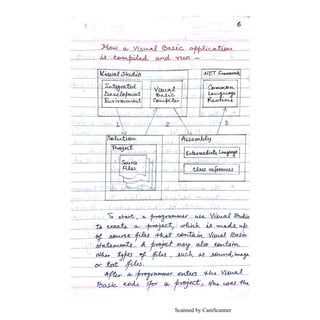 6
How a Visual Basic application
is compiled and run -
Visual Studio
.NET Framework
Integrated
Development
Environment
Visual
Basic
Compiler
Common
Language
Runtime
1
2
3
Solution
Assembly
Project
Source
Files
Intermediate Language
Class references
To start, a programmer use Visual Studio
to create a project, which is made up
of source files that contain Visual Basic
statements. A project may also contain
other types of files, such as sound, image
or text files.
After a programmer enters the Visual
Basic code for a project, she uses the
Scanned by CamScanner